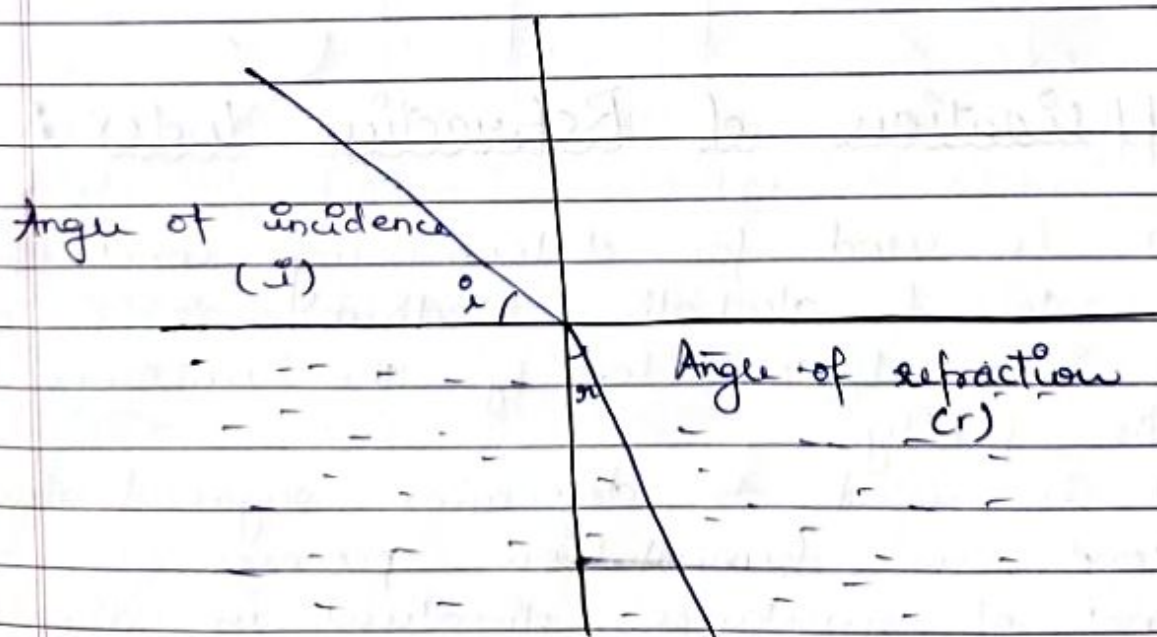 Angle of incidence
(i)
i
Angle of refraction
(r)
r